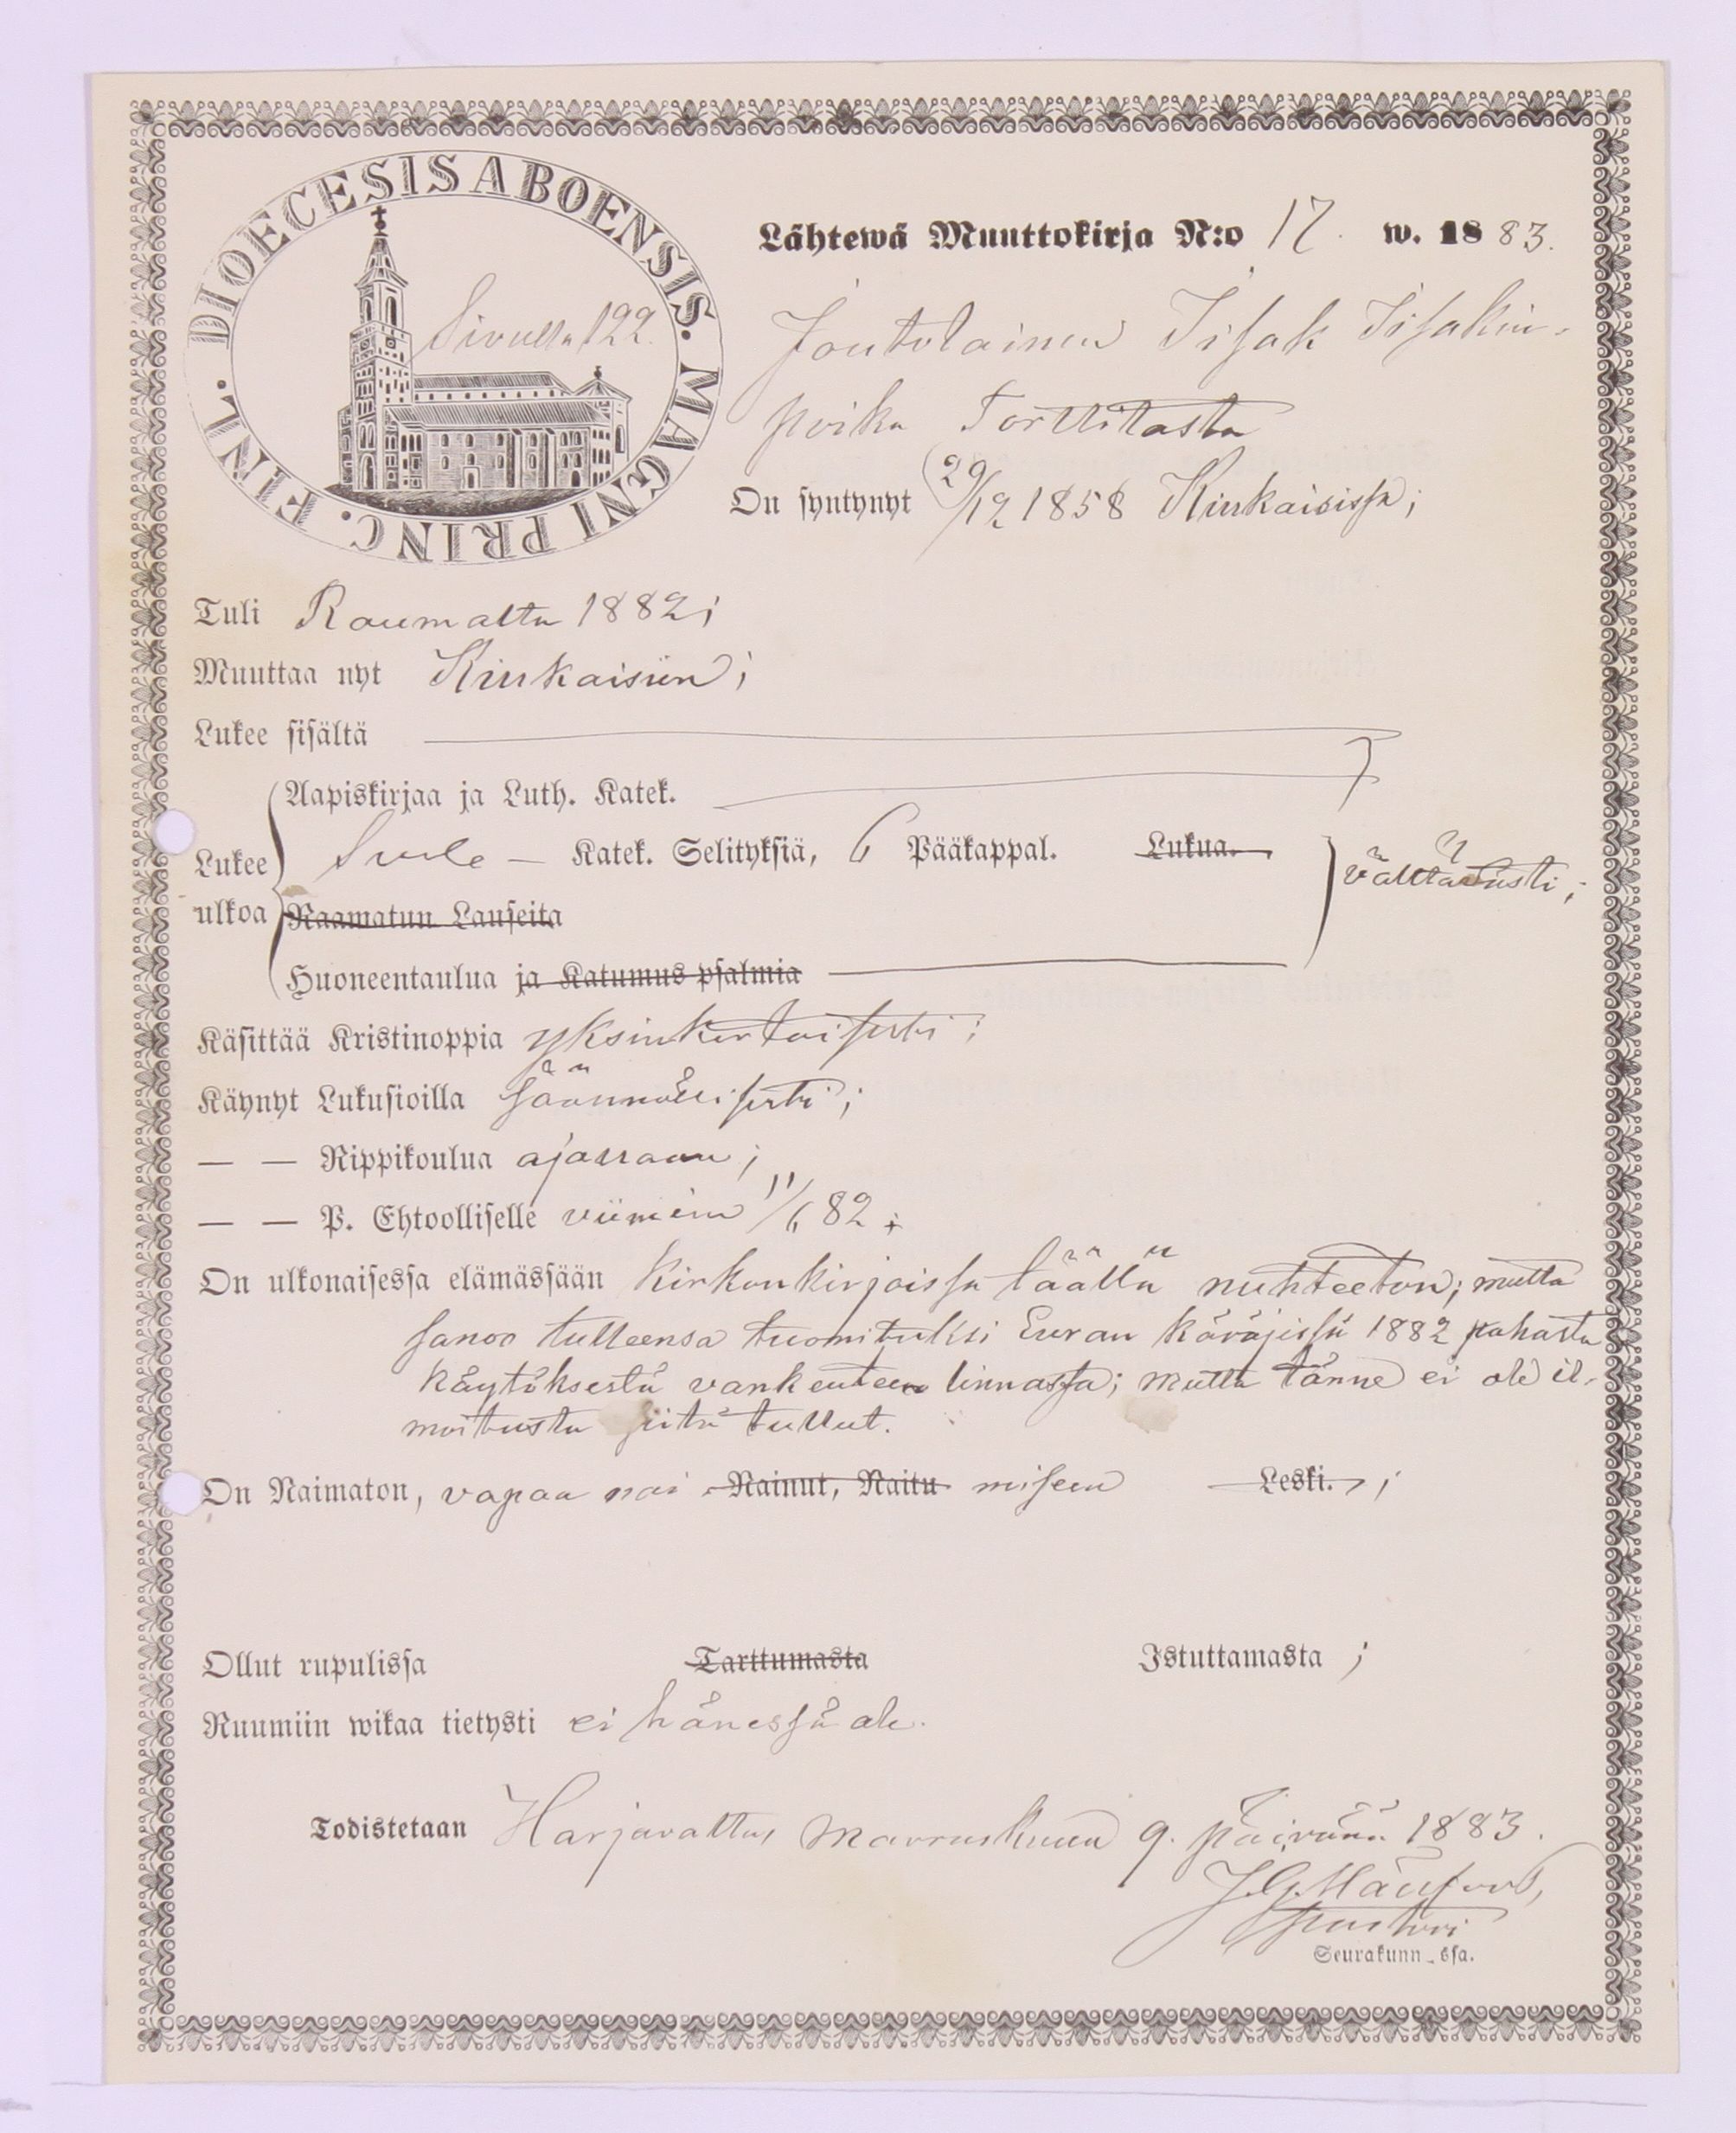 DIOECESIS ABOENSIS. MAGNI PRINC. FINL.
Sivulla 122.
Lähtewä Muuttokirja N:o 17. w. 1883.
Joutolainen Iisak Iisakin-
poika Torttilasta
On syntynyt 29/12 1858 Kiukaisissa;
Tuli Raumalta 1882;
Muuttaa nyt Kiukaisiin;
Lukee sisältä
Aapiskirjaa ja Luth. Katek.
Lukee ulkoa
Katek. Selityksiä, 6 Pääkappal. Lukua.
välttävästi;
Raamatun Lauseita
Huoneentaulua ja Katumus psalmia
Käsittää Kristinoppia yksinkertaisesti;
Käynyt Lukusioilla säännöllisesti;
— — Rippikoulua ajassaan;
— — P. Ehtoolliselle viimein 11/6 82;
On ulkonaisessa elämässään Kirkonkirjoissa täällä nuhteeton; mutta
sanoo tulleensa tuomituksi Euran käräjissä 1882 pahasta
käytöksestä vankeuteen linnassa; mutta tänne ei ole il-
moitusta siitä tullut.
On Naimaton, vapaa nai Nainut, Naitu miseen Leski.;
Ollut rupulissa Tarttumasta Istuttamasta;
Ruumiin wikaa tietysti ei hänessä ole.
Todistetaan Harjavallas, Marraskuun 9. päivänä 1883.
pastori
Seurakunn_ssa.